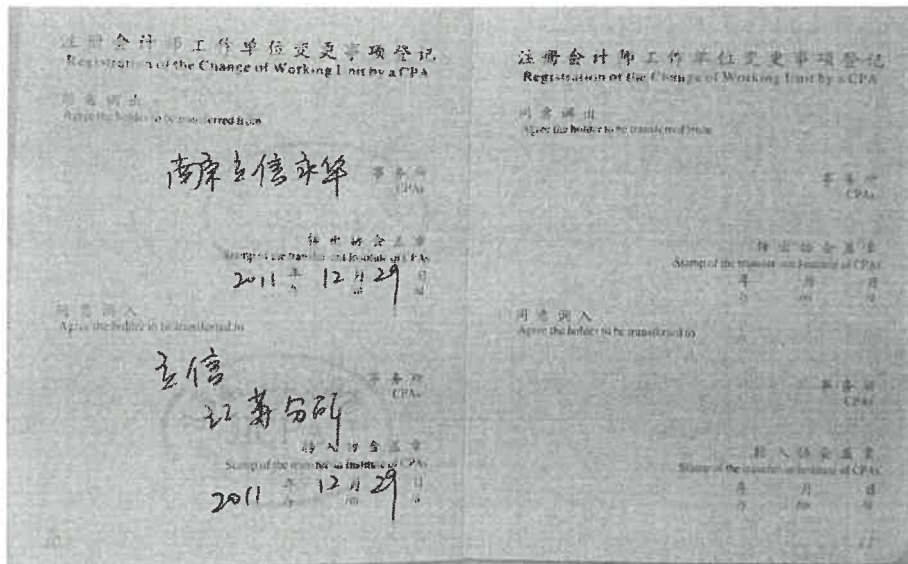 注册会计师工作单位变更事项登记
Registration of the Change of Working Unit by a CPA
同意调出
Agree the holder to be transferred from
南京立信永华
事务所
CPAs
转出协会盖章
Stamp of the transfer-out Institute of CPAs
2011 年 12 月 29 日
/y /m /d
同意调入
Agree the holder to be transferred to
立信
江苏分所
事务所
CPAs
转入协会盖章
Stamp of the transfer-in Institute of CPAs
2011 年 12 月 29 日
/y /m /d
10
注册会计师工作单位变更事项登记
Registration of the Change of Working Unit by a CPA
同意调出
Agree the holder to be transferred from
事务所
CPAs
转出协会盖章
Stamp of the transfer-out Institute of CPAs
年 月 日
/y /m /d
同意调入
Agree the holder to be transferred to
事务所
CPAs
转入协会盖章
Stamp of the transfer-in Institute of CPAs
年 月 日
/y /m /d
11